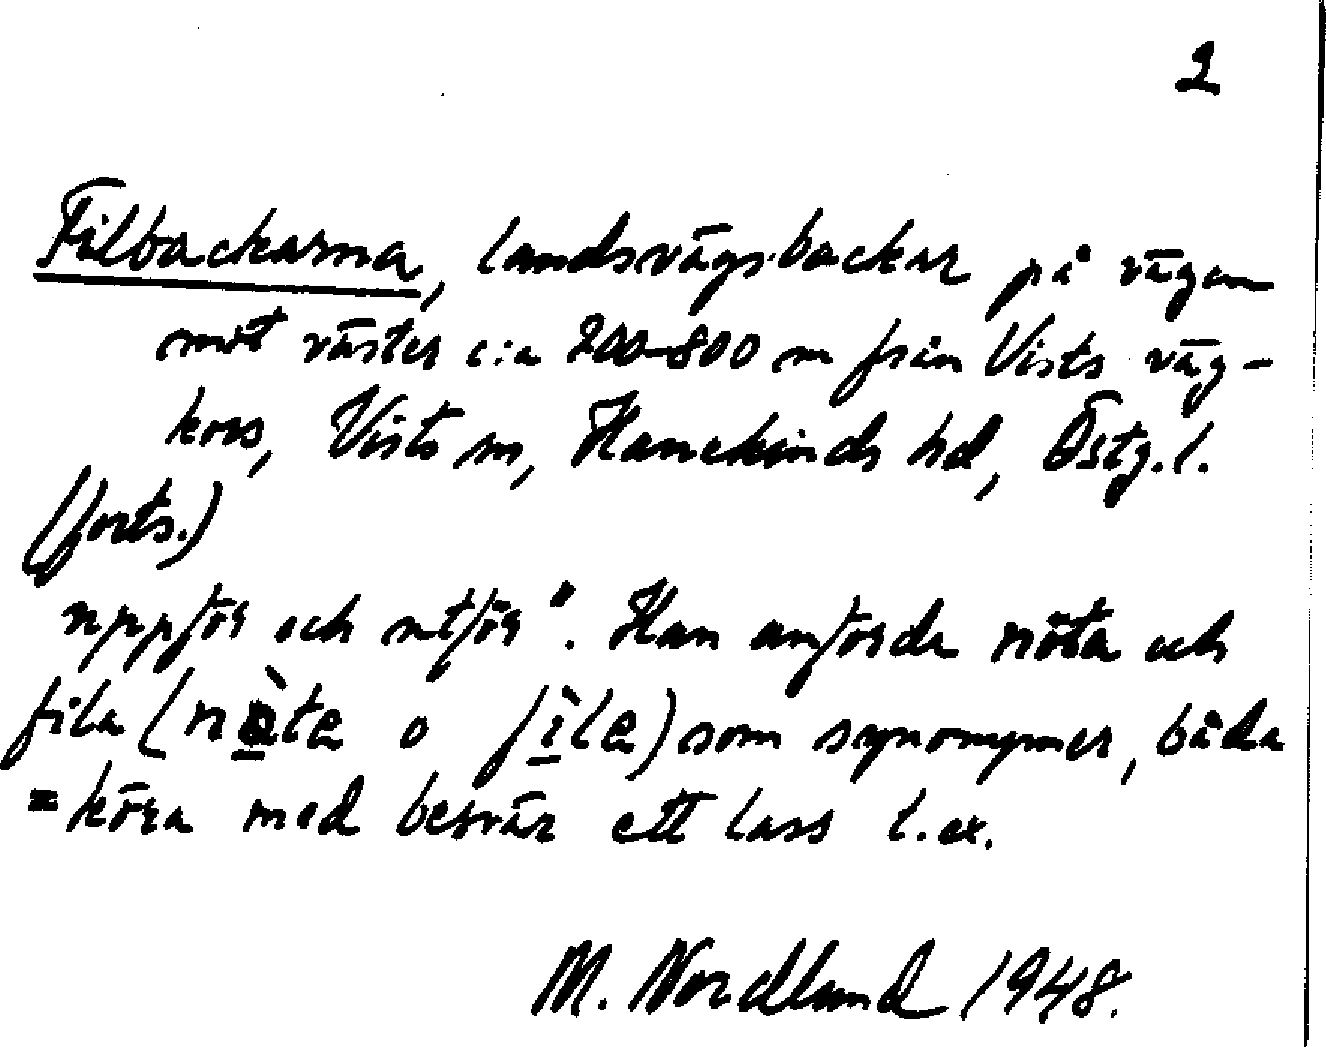 2
Filbackarna, landsvägsbackar på vägen
mot väster c:a 200-800 m från Vists väg-
kors, Vists sn, Hanekinds hd, Östg. l.
(forts.)
uppför och utför". Han anförde nöta och
fila (nö̀ta o fìla) som synonymer, båda
= köra med besvär ett lass t. ex.
M. Nordlund 1948.